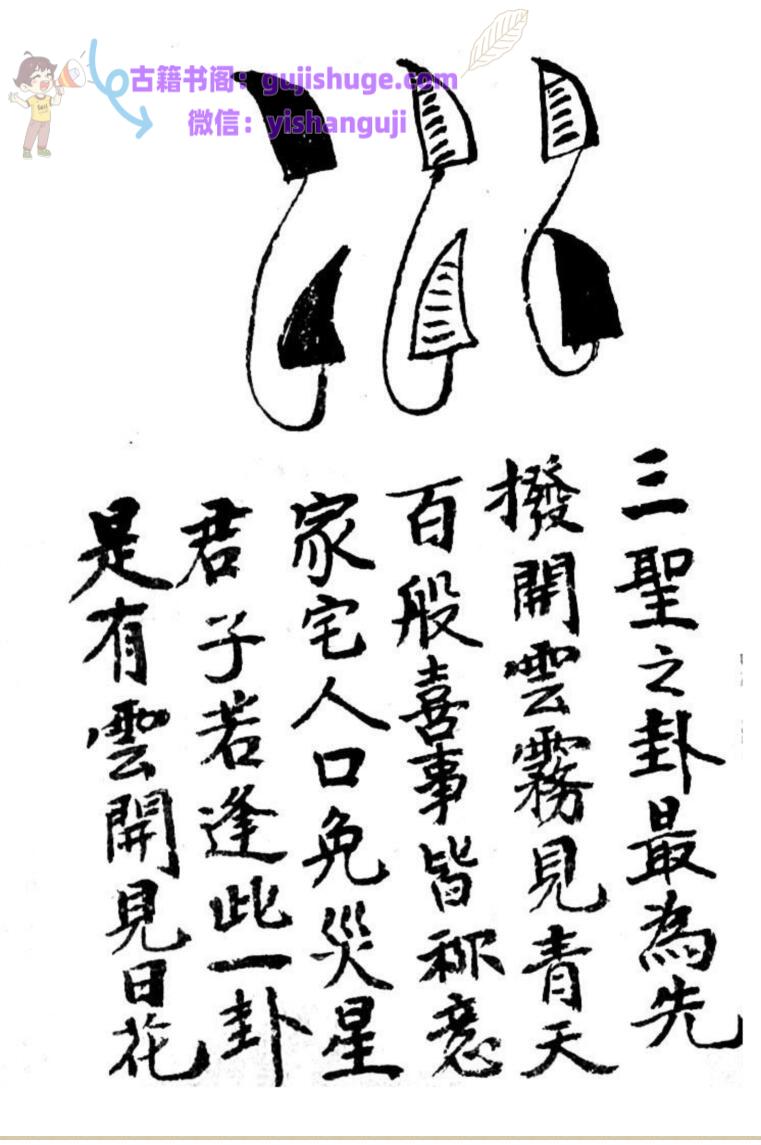 古籍书阁：gujishuge.com
微信：yishanguji
三聖之卦最為先
撥開雲霧見青天
百般喜事皆称意
家宅人口免災星
君子若逢此一卦
是有雲開見日花